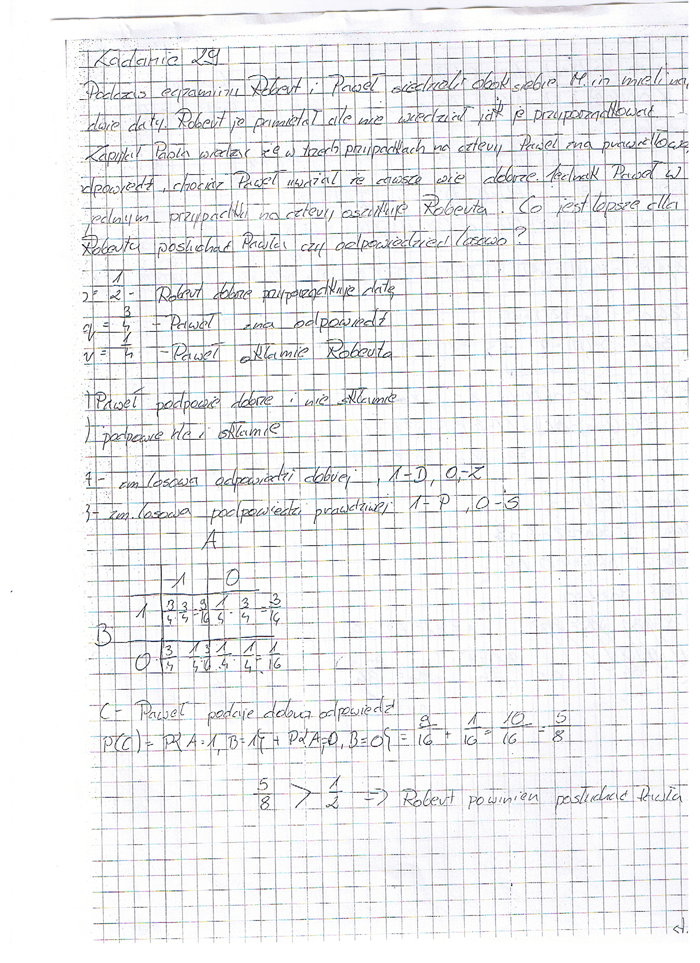 Zadanie 29
Podczas egzaminu Robert i Paweł siedzieli obok siebie. M.in mieli na
dwie daty. Robert je pamiętał ale nie wiedział jak je przyporządkować.
Zapytał Pawła wiedząc że w trzech przypadkach na cztery Paweł zna prawidłową
dpowiedź, chociaż Paweł uważał że zawsze wie dobrze. Jednak Paweł w
jednym przypadku na cztery oszukuje Roberta. Co jest lepsze dla
Roberta posłuchać Pawła czy odpowiedzieć losowo?
= 1/2 - Robert dobrze przyporządkuje datę
q = 3/4 - Paweł zna odpowiedź
= 1/4 - Paweł okłamie Roberta
) Paweł podpowie dobrze i nie skłamie
) podpowie źle i skłamie
- zm. losowa odpowiedzi dobrej, 1-D, 0-Z
- zm. losowa podpowiedzi prawdziwej 1-P, 0-S
A
1 0
B 1 3/4 · 3/4 = 9/16 1/4 · 3/4 = 3/16
0 3/4 · 1/4 3/16 1/4 · 1/4 = 1/16
C - Paweł podaje dobrą odpowiedź
P(C) = P{A=1, B=1} + P{A=0, B=0} = 9/16 + 1/16 = 10/16 = 5/8
5/8 > 1/2 => Robert powinien posłuchać Pawła